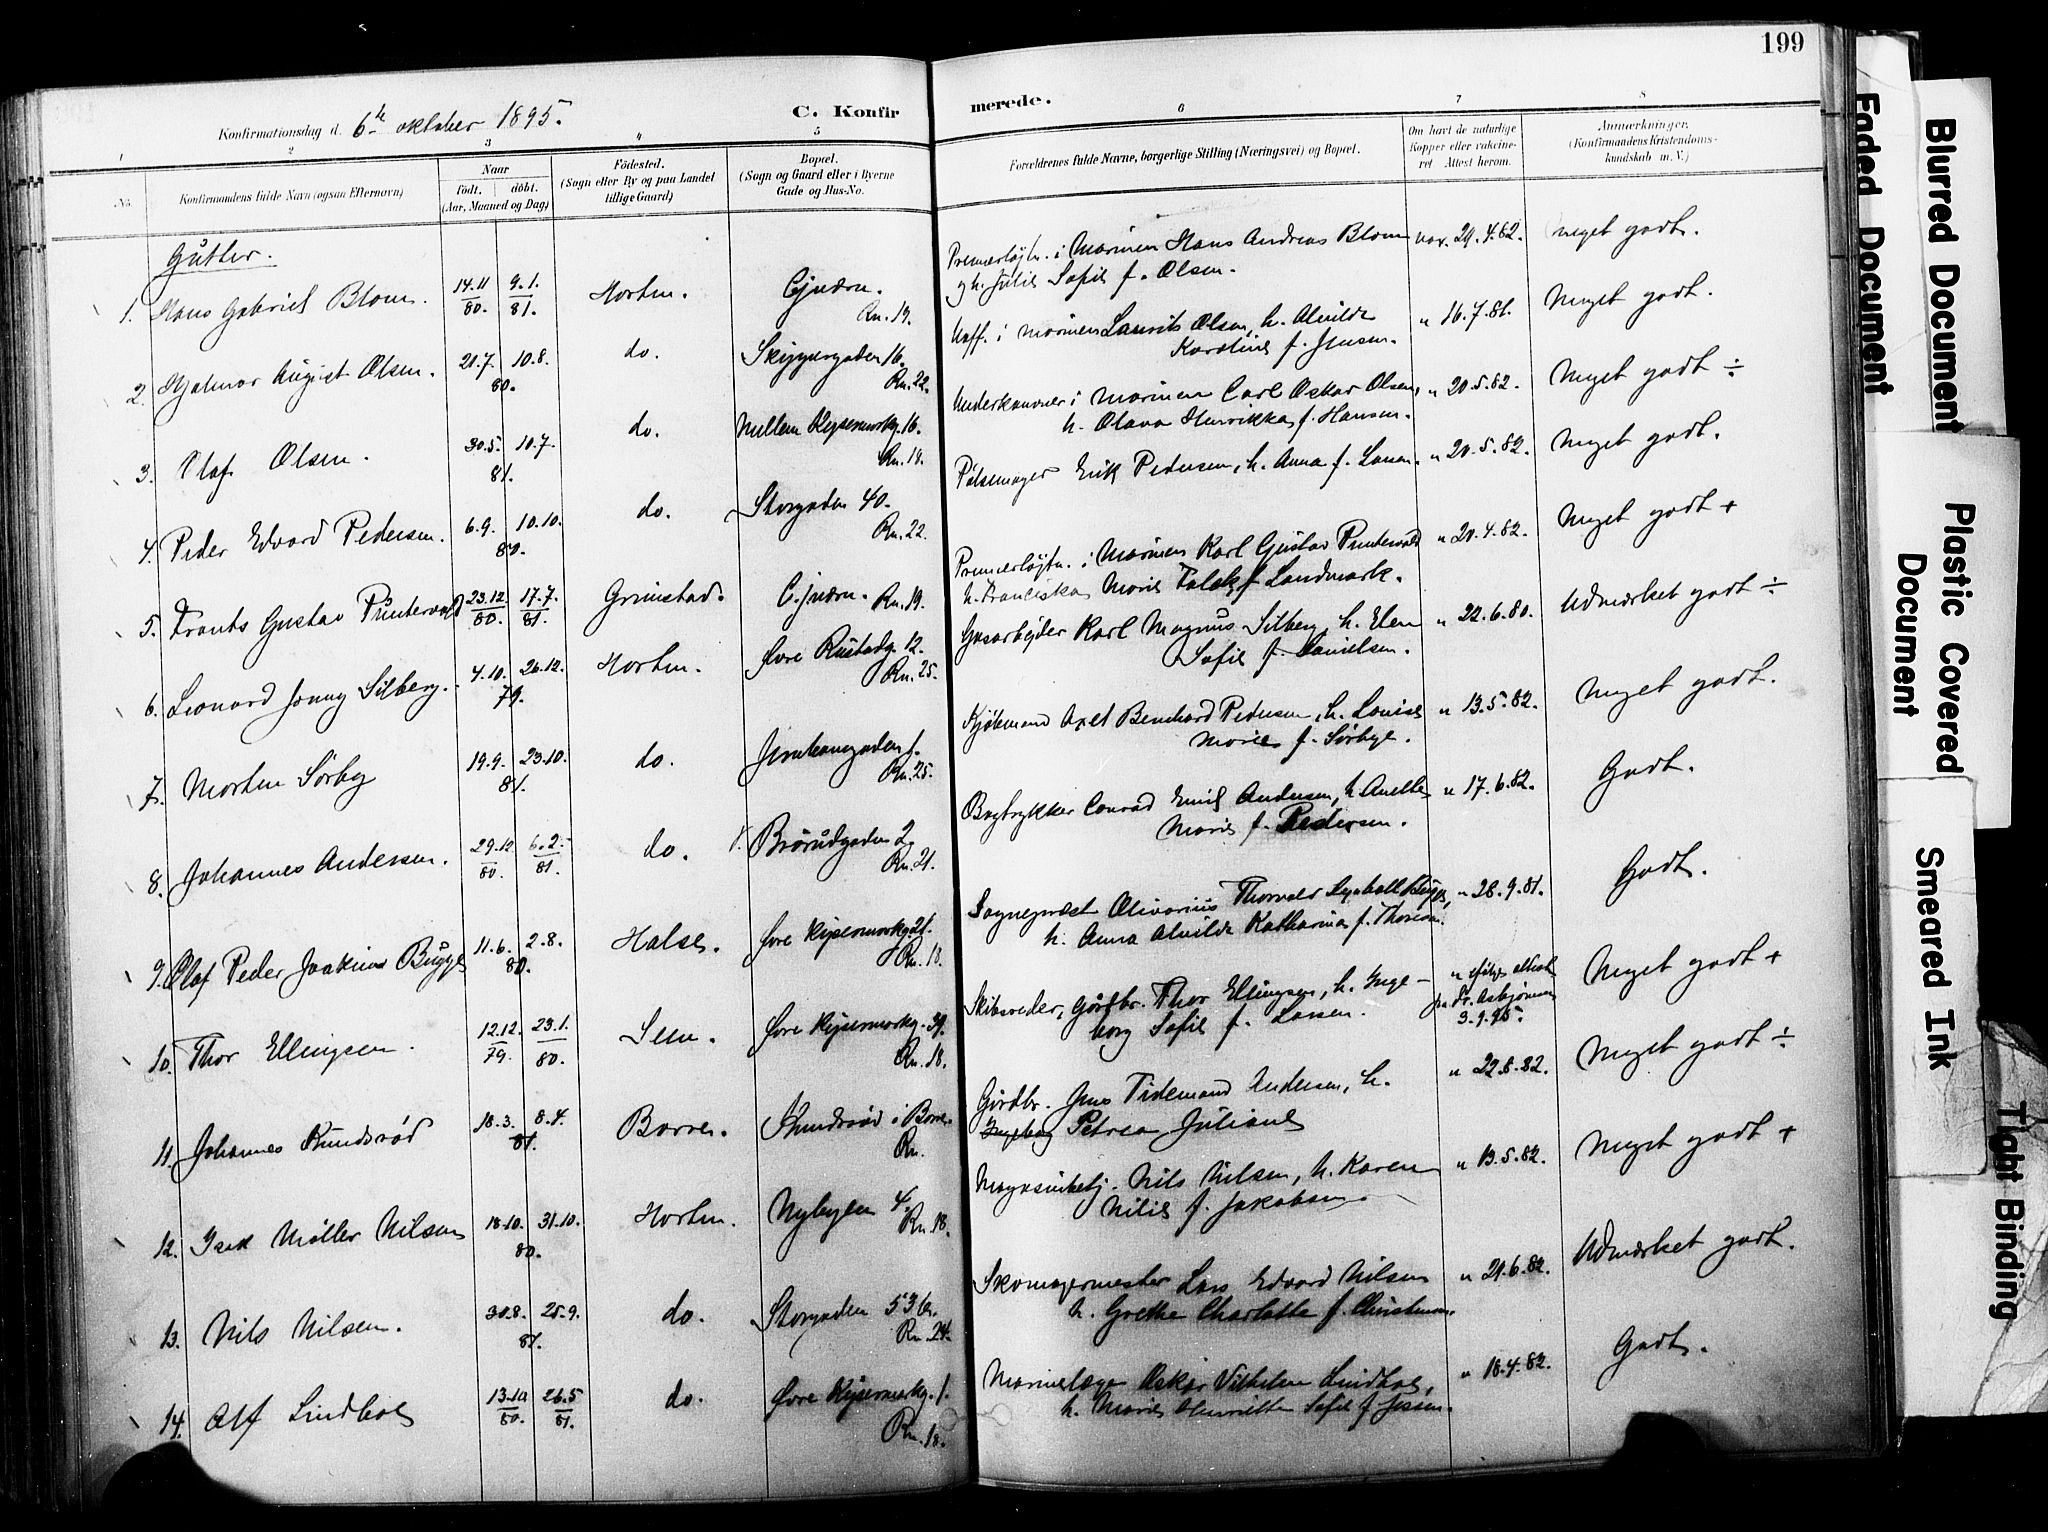 199
Konfirmationsdag d. 6te oktober 1895.
C. Konfir
merede.
1 2 3 4 5 6 7 8
No.
Konfirmandens fulde Navn (ogsaa Efternavn)
Naar
født. døbt.
(Aar, Maaned og Dag)
Fødested.
(Sogn eller By og paa Landet
tillige Gaard)
Bopæl.
(Sogn og Gaard eller i Byerne
Gade og Hus-No.
Forældrenes fulde Navne, borgerlige Stilling (Næringsvei) og Bopæl.
Om havt de naturlige
Kopper eller vakcine-
ret. Attest herom.
Anmærkninger.
(Konfirmandens Kristendoms-
kundskab m. V.)
Gutter.
1. Hans Gabriel Blom. 14.11 80. 9.1. 81. Horten.
Rn. 19.
Premierløjtn. i Marinen Hans Andreas Blom vac. 29.4.82. meget godt.
og h. Julie Sofie f. Olsen.
2. Hjalmar August Olsen. 21.7. 10.8. 80. do. Skippergaden 16.
Rn. 22.
Uoff. i Marinen Laurits Olsen, h. Alvilde " 16.7.81. Meget godt.
Karoline f. Jensen.
3. Olaf Olsen. 30.5. 10.7. 81. do. Mellem Keysermarkg. 16.
Rn. 19.
Underkanoner i Marinen Carl Oskar Olsen, " 20.5.82. Meget godt ÷
h. Olava Henrikka f. Hansen.
4. Peder Edvard Pedersen. 6.9. 10.10. 80. do. Storgaden 40.
Rn. 22.
Pølsemager Erik Pedersen, h. Anna f. Larsen. " 20.5.82. Meget godt.
5. Frants Gustav Puntervold 23.12. 80. 17.7. 81. Grimstad.
Rn. 19.
Premierløjtn. i Marinen Karl Gustav Puntervold " 20.4.82. Meget godt +
h. Franciska Marie Falck f. Landmark.
6. Leonard Jonny Silberg. 4.10. 26.12. 79. Horten. Øvre Rustadg. 12.
Rn. 25.
Gasarbejder Karl Magnus Silberg, h. Elen " 22.6.80. Udmærket godt ÷
Sofie f. Danielsen.
7. Morten Sørby 19.9. 23.10. 81. do. Jernbanegaden 1.
Rn. 25.
Kjøbmand Axel Bernhard Pedersen, h. Louise " 13.5.82. Meget godt.
Marie f. Sørbye.
8. Johannes Andersen. 29.12 80. 6.2. 81. do. Brårudgaden 2.
Rn. 21.
Bogtrykker Conrad Emil Andersen, h. Anette " 17.6.82. Godt.
Marie f. Pedersen.
9. Olaf Peder Joakim Bugge 11.6. 2.8. 80. Halse. Øvre Keysermarkg. 21.
Rn. 18.
Sogneprest Olivarius Thorvald Bugge, " 28.9.81. Godt.
h. Anna Alvilde Katharina f. Thoresen.
10. Thor Ellingsen. 12.12. 79. 23.1. 80. Sem. Øvre Keysermarkg. 31.
Rn. 18.
Skibsreder, Gårdbr. Thor Ellingsen, h. Inge- " ifølge attest Meget godt +
borg Sofie f. Larsen. fra Dr. Asbjørnsen
3.9.95.
11. Johannes Knudsrød 18.3. 8.4. 81. Borre. Knudsrød i Borre.
Rn.
Gårdbr. Jens Tidemand Andersen, h. " 22.8.82. Meget godt ÷
Ingeborg Petrea Juliane
12. Isak Møller Nilsen 18.10. 31.10. 80. Horten. Nybyen 4.
Rn. 18.
Magasinbetj. Nils Nilsen, h. Karen " 13.5.82. Meget godt +
Nilie f. Jakobsen.
13. Nils Nilsen. 30.8. 25.9. 81. do. Storgaden 53 b.
Rn. 24.
Skomagermester Lars Edvard Nilsen " 21.6.82. Udmærket godt.
h. Grethe Charlotte f. Christensen.
14. Alf Lindboe 13.10 80. 26.5 81. do. Øvre Keysermarkg. 1.
Rn. 18.
Marinelæge Oskar Vilhelm Lindboe, " 18.4.82. Godt.
h. Marie Henriette Sofie f. Jessen.
Faded Document
Blurred Document
Plastic Covered
Document
Smeared Ink
Tight Binding